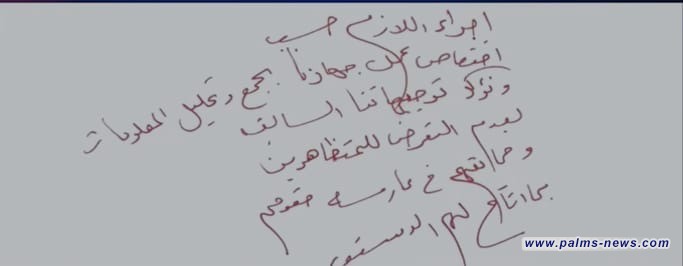 اجراء اللازم حسب
اختصاص عمل جهازنا بجمع وتحليل المعلومات
ونؤكد توجيهاتنا السالف
بعدم التعرض للمتظاهرين
وحمايتهم في ممارسه حقوقهم
بما اتاح لهم الدستور
www.palms-news.com